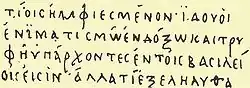 ΤΙΟΙCΗΜΦΙΕCΜΕΝΟΝ·ΪΔΟΥΟΙ
ΕΝΪΜΑΤΙCΜΩΕΝΔΟΞΩΚΑΙΤΡΥ
ΦΗΥΠΑΡΧΟΝΤΕCΕΝΤΟΙCΒΑCΙΛΕΙ
ΟΙCΕΙCΙΝ·ΑΛΛΑΤΙΕΞΕΛΗΛΥΘΑ